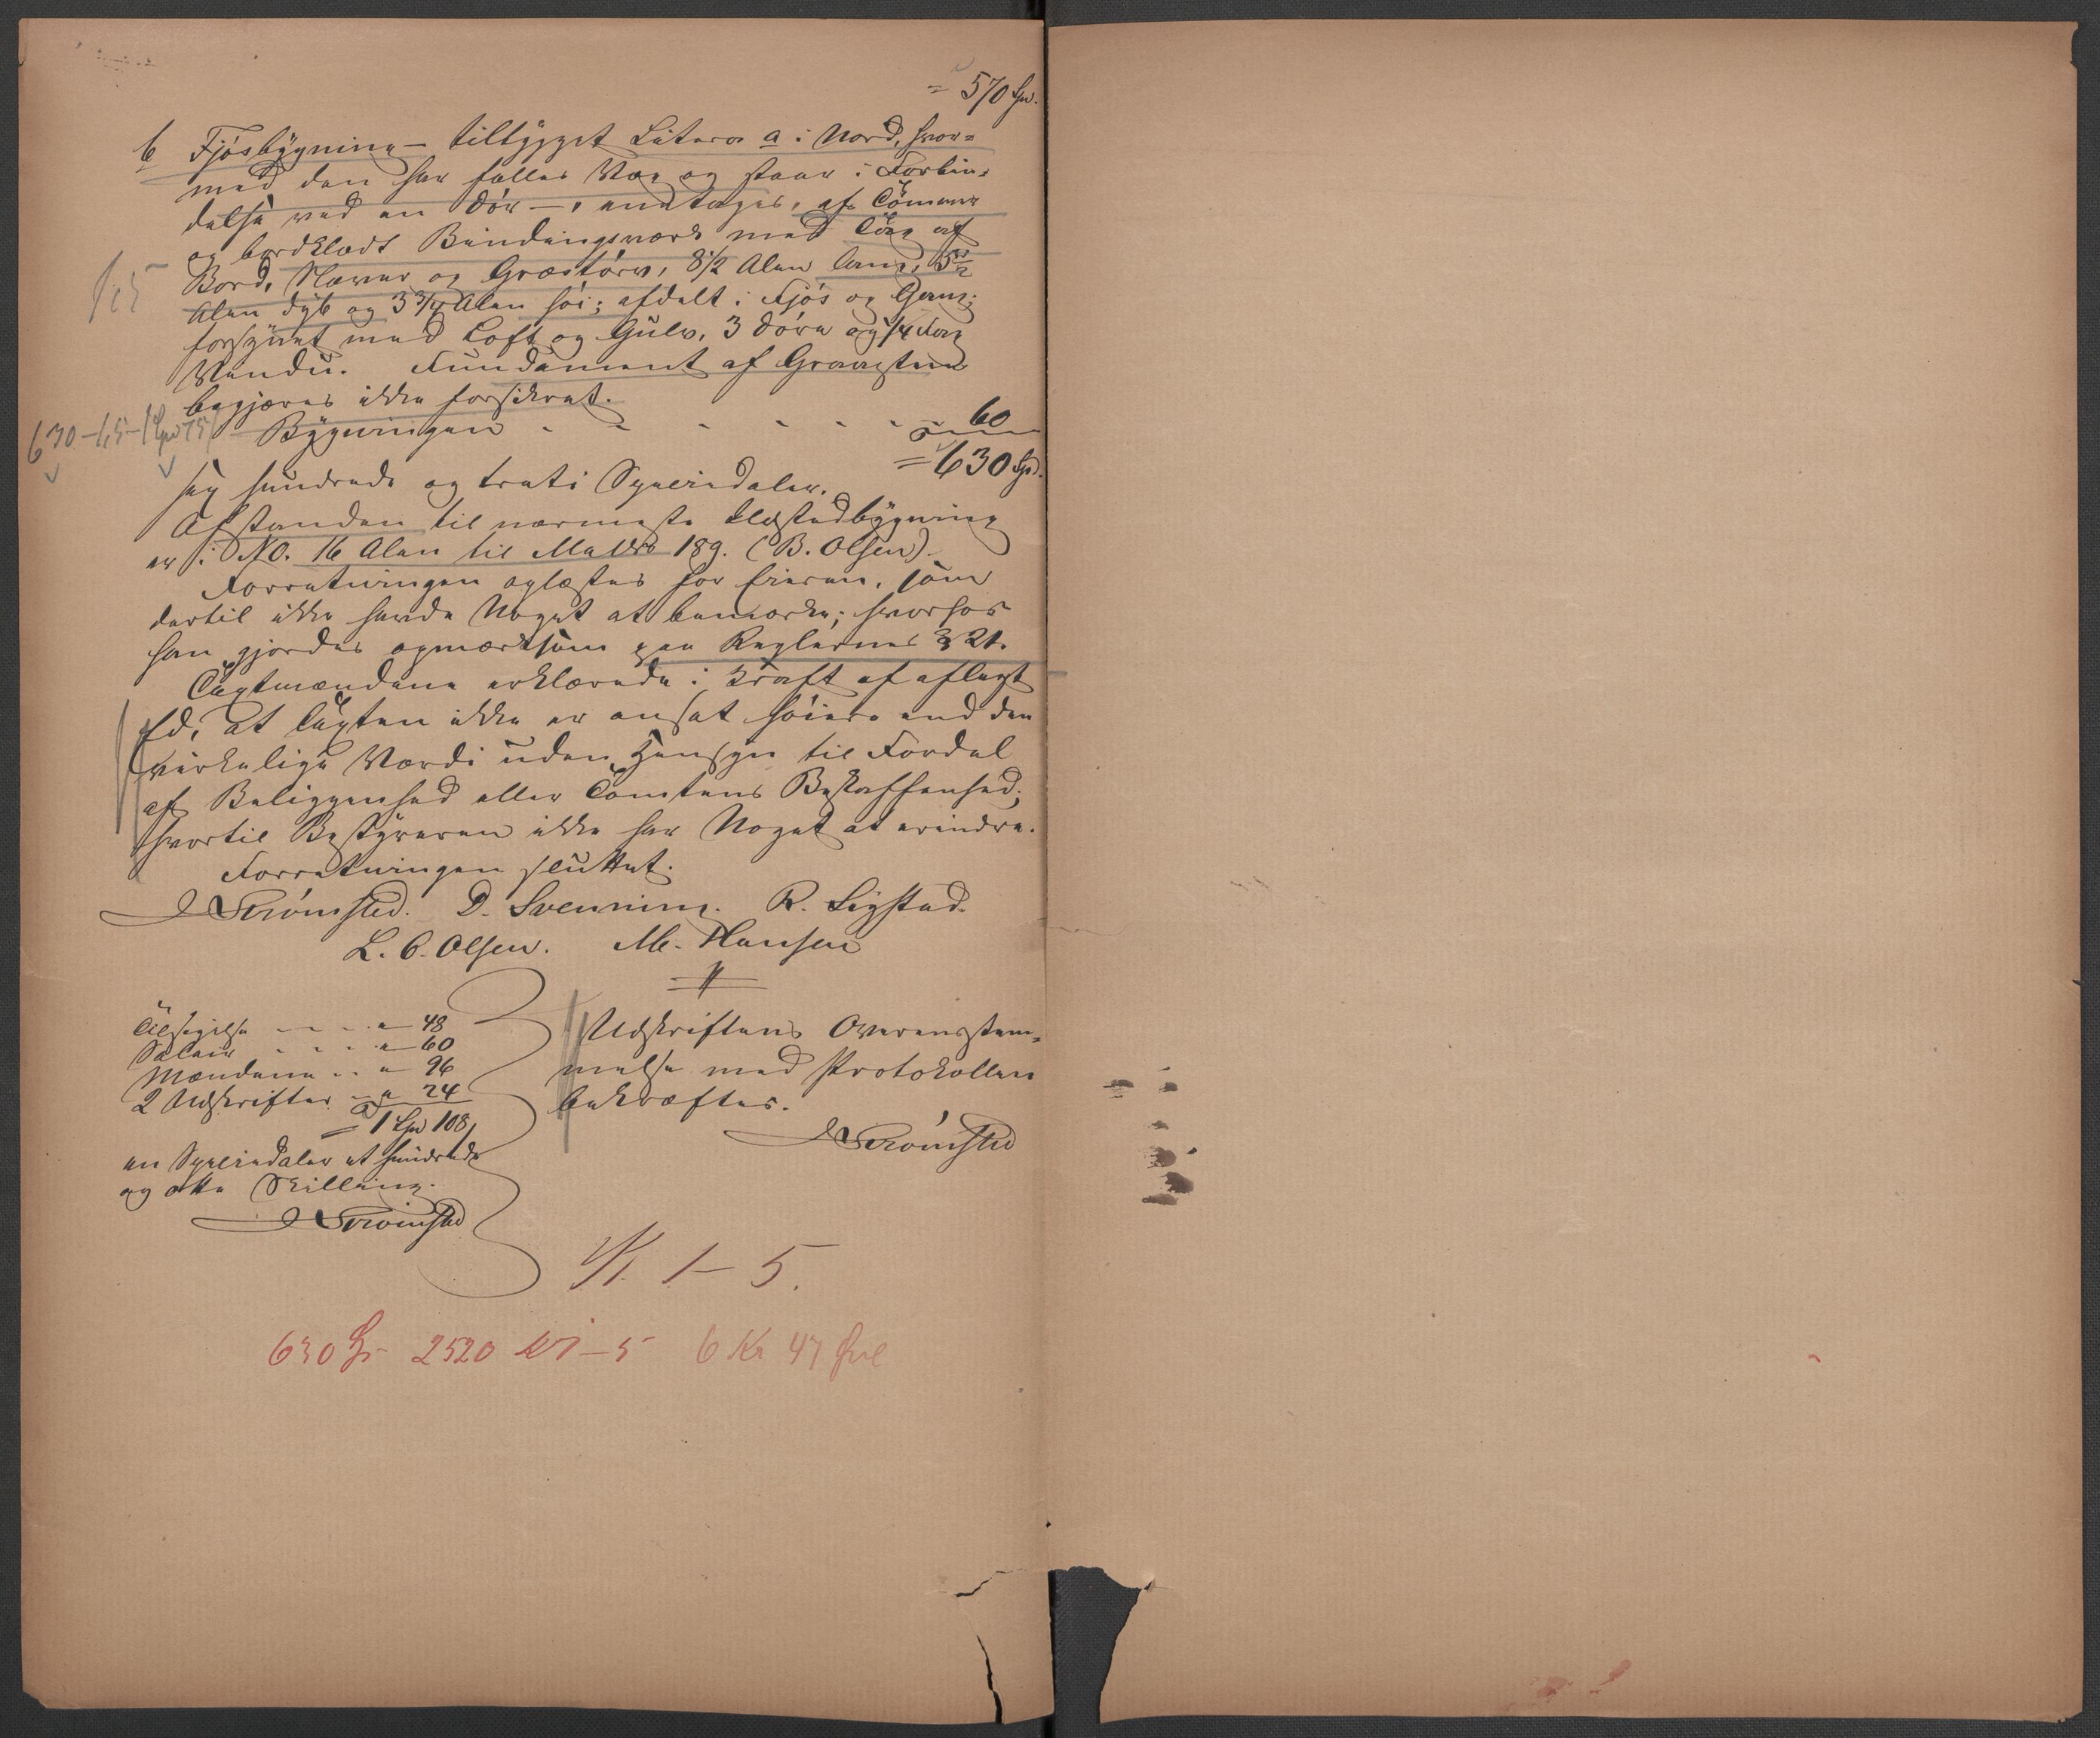 = 570 Spd.
b Fjøsbygning – tilbygget Litera a i Nord, hvor-
med den har fælles Væg og staar i Forbin-
delse ved en Dør –, enetages, af Tømmer
og bordklædt Bindingsværk med Tag af
Bord, Næver og Græstørv, 8 1/2 Alen lang, 5 1/2
Alen dyb og 3 3/4 Alen høi; afdelt i Fjøs og Gang;
forsynet med Loft og Gulv, 3 Døre og 1/4 Fag
Vindu. Fundament af Graasten
begjæres ikke forsikret.
Bygningen - - - - - - 60
= 630 Spd.
sex hundrede og treti Speciedaler.
Afstanden til nærmeste Ildstedbygning
er i NO. 16 Alen til Matr. 189. (B. Olsen).
Forretningen oplæstes for Eieren, som
dertil ikke havde Noget at bemærke; hvorhos
han gjordes opmærksom paa Reglernes § 21.
Taxtmændene erklærede i Kraft af aflagt
Ed, at Taxten ikke er ansat høiere end den
virkelige Værdi uden Hensyn til Fordel
af Beliggenhed eller Tomtens Beskaffenhed;
hvortil Bestyreren ikke har Noget at erindre.
Forretningen sluttet.
Strømsted. D. Svenning. R. Sigstad.
L. C. Olsen. M. Hansen
Tilsigelse - - - " - 48
Salair - - - - " - 60
Mændene - - " - 96
2 Udskrifter - " - 24
= 1 Spd 108
en Speciedaler et hundrede
og otte Skilling.
Strømsted
Udskriftens Overensstem-
melse med Protokollen
bekræftes.
Strømsted
1 – 5.
630 Sp 2520 – 5 6 Kr 47 Øre